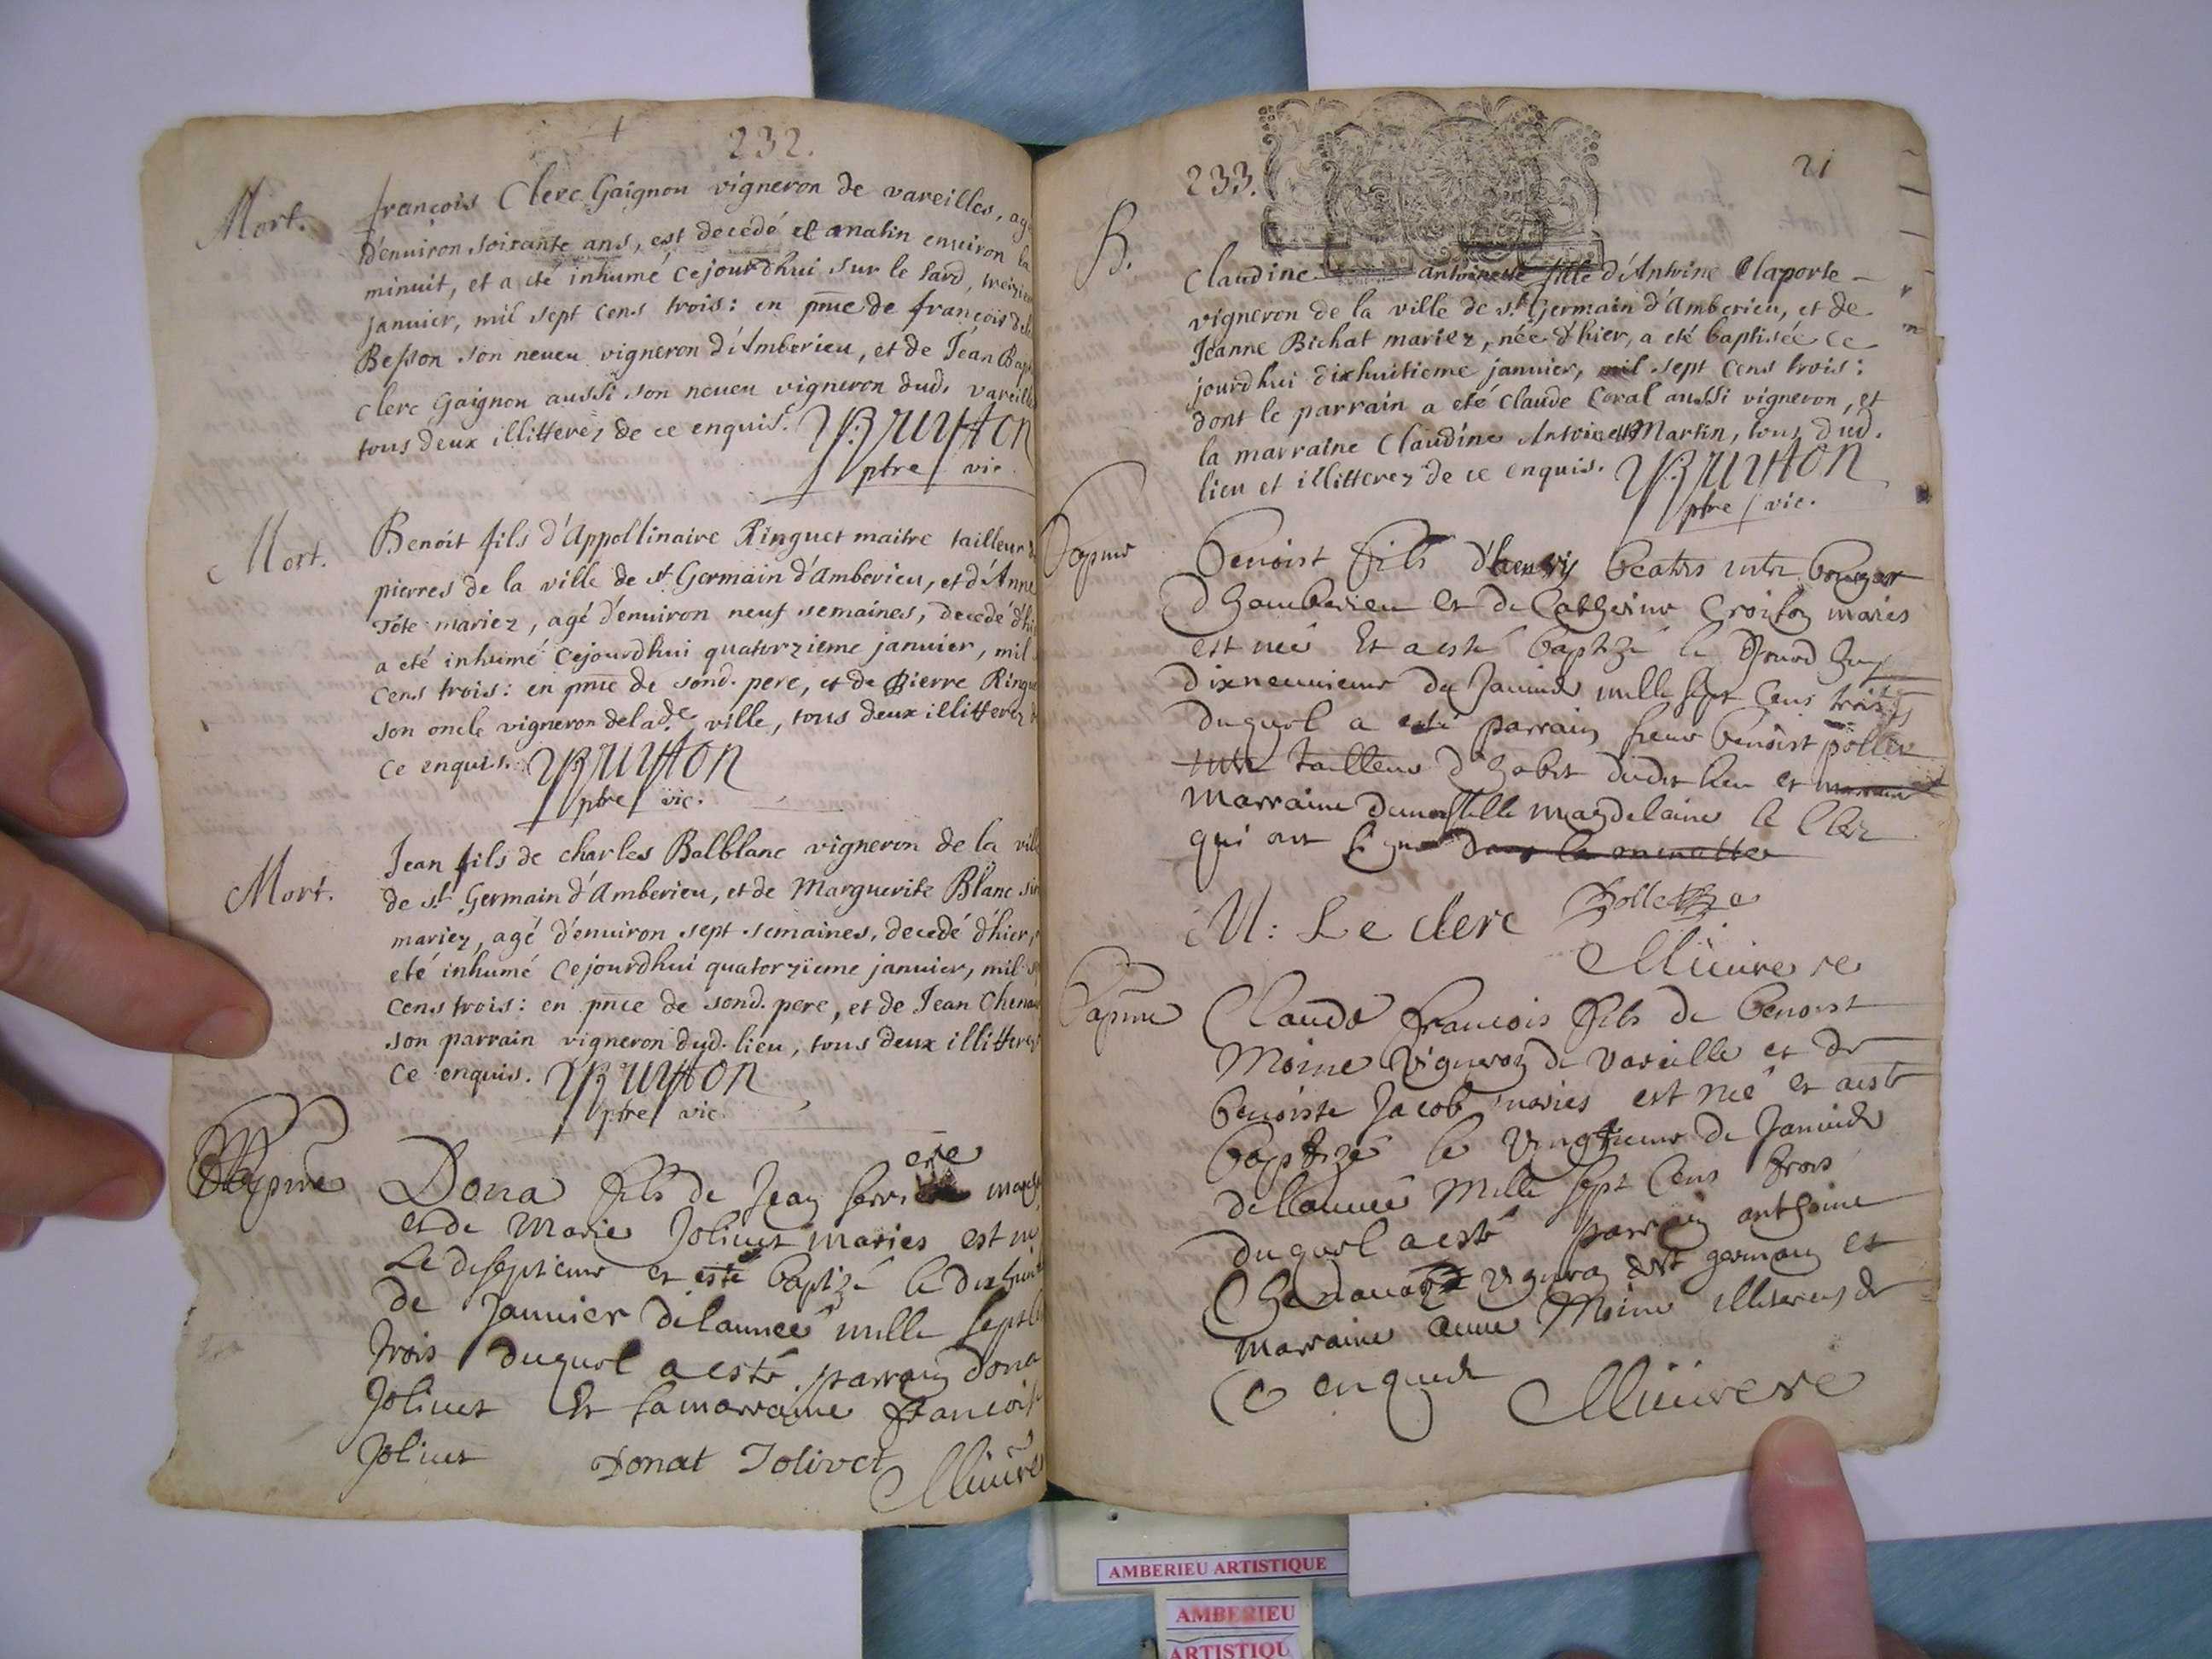 232.
Mort.
françois Clerc Gaignon vigneron de vareilles, ag
d'enuiron soixante ans, est decedé et matin enuiron la
minuit, et a eté inhumé cejourdhui sur le tard, treizie
januier, mil sept cens trois: en pnce de françois
Besson son neueu vigneron d'Amberieu, et de Jean Bap
clerc Gaignon aussi son neueu vigneron dud. vareille
tous deux illitterez de ce enquis.
ptre vic.
Mort.
Benoit fils d'Appollinaire Ringuet maitre tailleur d
pierres de la ville de st. Germain d'amberieu, et d'Anne
Tête mariez, agé d'enuiron neuf semaines, decedé d'hi
a eté inhumé cejourdhui quatorzieme januier, mil
cens trois: en pnce de sond. pere, et de Pierre Ringue
son oncle vigneron delade. ville, tous deux illitterez d
ce enquis.
ptre vic.
Mort.
Jean fils de charles Balblanc vigneron de la ville
de st. Germain d'Amberieu, et de Marguerite Blanc
mariez, agé d'enuiron sept semaines, decedé d'hier,
eté inhumé cejourdhui quatorzieme januier, mil s
cens trois: en pnce de sond. pere, et de Jean Chena
son parrain vigneron dud. lieu, tous deux illitterez
ce enquis.
ptre vic.
Dona fils de Jean
et de Marie Joliuet maries est né
Le diseptieme et esté baptizé le dixhuit
de Januier delanneé mille sept
trois duquel a esté parrain dona
Joliuet Et la marraine francoise
Joliuet Donat Jolivet
233.
21
B.
Claudine antoinette fille d'Antoine Claporte
vigneron de la ville de st. Germain d'Amberieu, et de
Jeanne Bichat mariez, née d'hier, a eté baptisée ce
jourdhui dixhuitieme januier, mil sept cens trois:
dont le parrain a eté claude Coral aussi vigneron, et
la marraine Claudine Antoinette Martin, tous dud.
lieu et illitterez de ce enquis.
ptre vic.
benoist fils d'henry
et de Catherine maries
est neé Et a esté baptizé ce Jourd huy
dixneuuieme de Januier mille sept Cens trois
duquol a esté parrain sieur benoist
mtre tailleur d'habit dudit lieu et
marraine damoiselle magdelaine le Clerc
qui ont signé dans la minutte
M: Le clerc
Claude francois fils de benoist
Moine vigneron de Vareille et de
benoiste Jacob maries est neé et a esté
baptizé le vingtieme de Januier
dellanneé Mille sept Cens trois
duquol a esté parrain anthoine
vigneron de st germain et
marraine anne Moine illiteres de
ce enquis
AMBERIEU ARTISTIQUE
AMBERIEU
ARTISTIQU